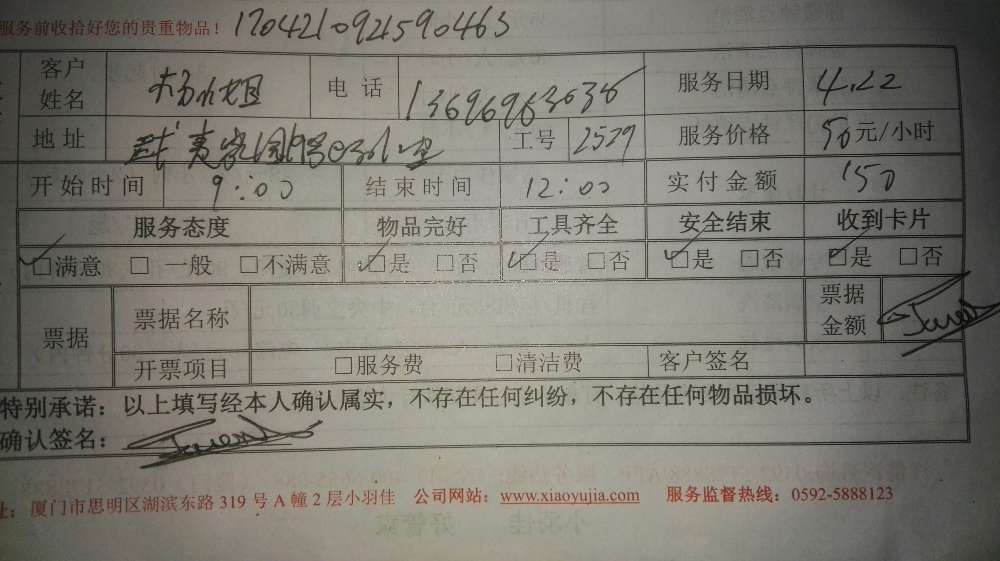 服务前收拾好您的贵重物品！ 1704210924590463
客户姓名 杨小姐 电话 13696963636 服务日期 4.22
地址 工号 2529 服务价格 50元/小时
开始时间 9:00 结束时间 12:00 实付金额 150
服务态度 物品完好 工具齐全 安全结束 收到卡片
□满意 □一般 □不满意 □是 □否 □是 □否 □是 □否 □是 □否
票据 票据名称 票据金额
开票项目 □服务费 □清洁费 客户签名
特别承诺：以上填写经本人确认属实，不存在任何纠纷，不存在任何物品损坏。
确认签名：
址：厦门市思明区湖滨东路 319 号 A 幢 2 层小羽佳 公司网站：www.xiaoyujia.com 服务监督热线：0592-5888123